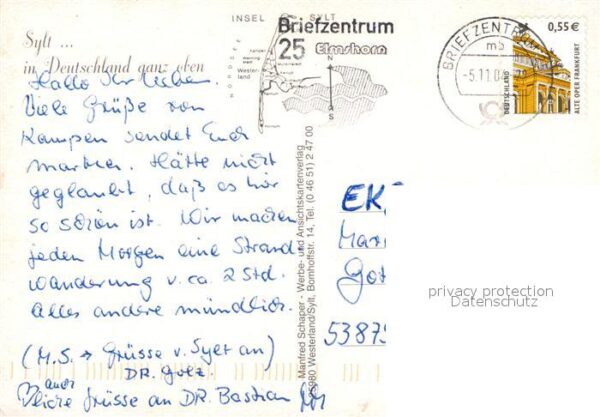 INSEL SYLT
Sylt ...
in Deutschland ganz oben
NORDSEE
Briefzentrum
25 Elmshorn
N
S
BRIEFZENTR
mb
-5.11.04
0,55 €
DEUTSCHLAND
ALTE OPER FRANKFURT
Hallo Ihr Lieben.
Viele Grüße von
Kampen sendet Euch
Hätte nicht
geglaubt, daß es hier
so schön ist. Wir machen
jeden Morgen eine Strand
wanderung v. ca. 2 Std.
Alles andere mündlich.
(M.S. → Grüsse v. Sylt an)
DR. Götz
auch
liche Grüsse an DR. Bastian
Manfred Schaper - Werbe- und Ansichtskartenverlag
25980 Westerland/Sylt, Bomhoffstr. 14, Tel. (0 46 51) 2 47 00
EK
Mar
Got
53879
privacy protection
Datenschutz